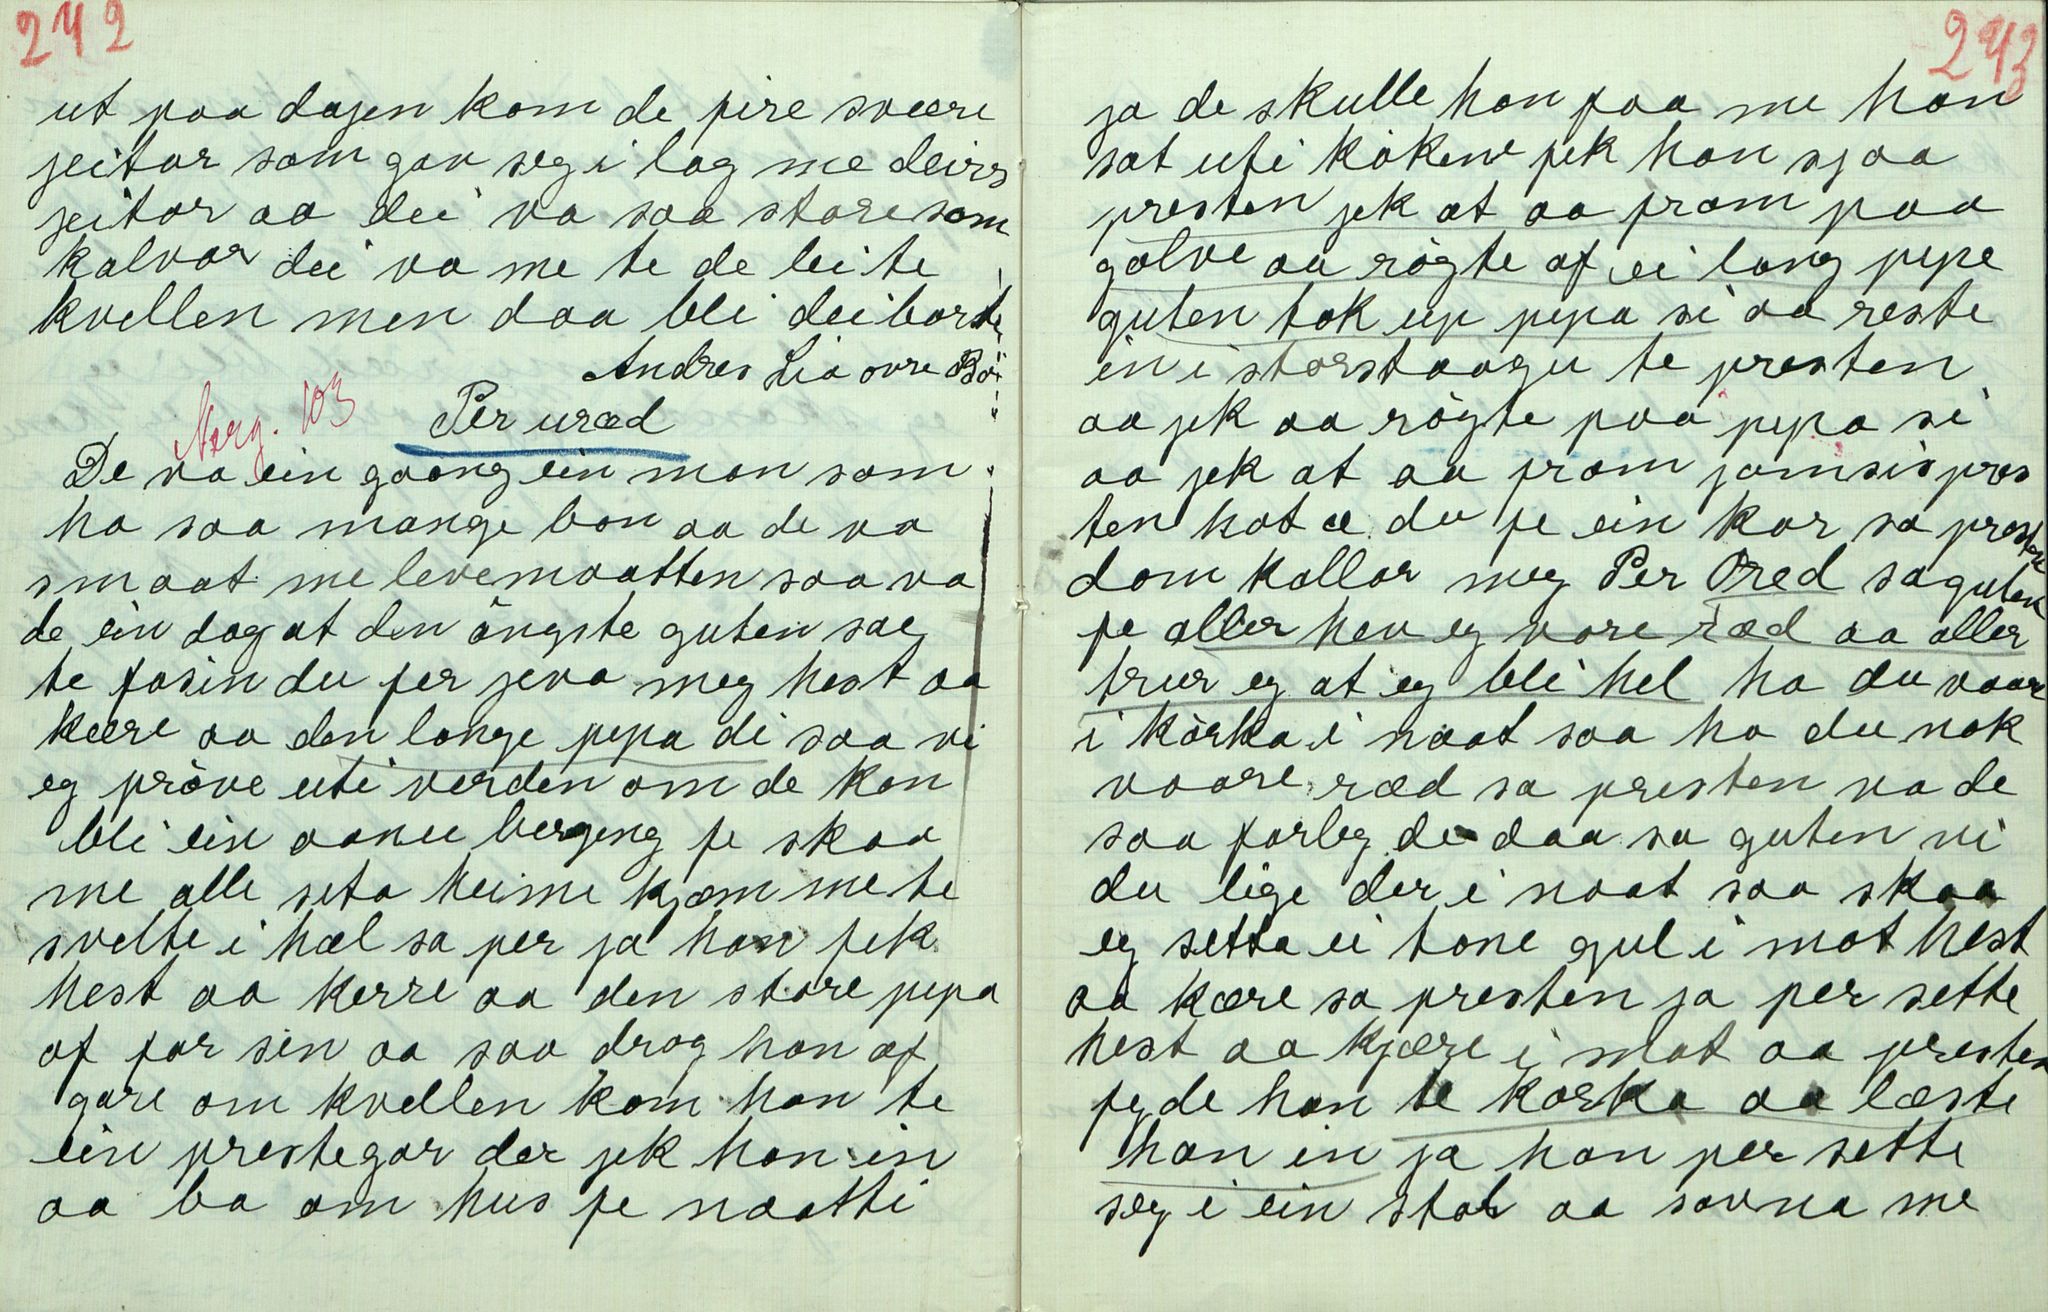 242
ut paa dajen kom de fire svære
jeitar som gav seg i lag me deirs
jeitar aa dei va saa store som
kalvar dei va me te de lei te
kvellen men daa blei dei borte
Andres Lia øvre Bø
Per uræd
Norg. 103
De va ein gaang ein man som
ha saa mange bon aa de va
smaat me levemaatten saa va
de ein dag at den öngste guten sae
te farsin du fer jeva meg hest aa
kære aa den lange pepa di saa vi
eg pröve uti verden om de kan
bli ein aanen berging fe skaa
me alle seta heime kjæm me te
svelte i hæl sa per ja han fek
hest aa kerre aa den store pepa
af far sin aa saa drog han af
gare om kvellen kom han te
ein prestegar der jek han in
aa ba om hus fe naatti
243
ja de skulle han faa me han
sat uti köken fek han sjaa
presten jek at aa fram paa
golve aa rögte af ei lang pepe
guten tok up pepa si aa reste
in i storstaagu te presten
aa jek aa rögte paa pepa si
aa jek at aa fram jamsis pres
ten hot æ du fe ein kar sa presten
dom kallar meg Per Oræd sa guten
fe aller hev eg vore ræd aa aller
trur eg at eg bli hel ha du vaar
i körka i naat saa ha du nok
vaare ræd sa presten va de
saa farleg de daa sa guten vi
du lige der i naat saa skaa
eg setta ei tone gul i mot hest
aa kære sa presten ja per sette
hest aa kjære i mot aa presten
fegde han te karka aa læste
han in ja han per sette
seg i ein stol aa sovna me